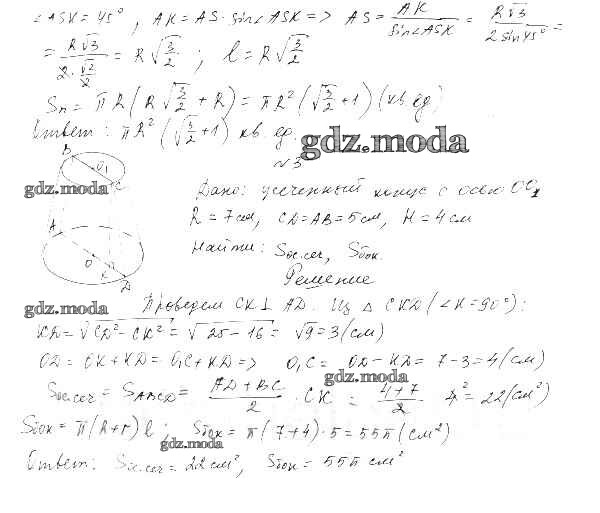 ∠ASK = 45°, AK = AS · sin∠ASK => AS = AK / sin∠ASK = R√3 / 2sin45° =
= R√3 / (2 · √2/2) = R√(3/2) ; l = R√(3/2)
Sп = πR(R√(3/2) + R) = πR²(√(3/2) + 1) (кв ед)
Ответ: πR²(√(3/2) + 1) кв. ед.
gdz.moda
№3
B
O₁
C
gdz.moda
Дано: усеченный конус с осью OO₁
R = 7см, CD = AB = 5см, H = 4см
A
Найти: Sос.сеч, Sбок.
O
K
D
Решение
gdz.moda
Проведем CK ⊥ AD. Из △ CKD (∠K = 90°):
KD = √(CD² - CK²) = √(25 - 16) = √9 = 3 (см)
OD = OK + KD = O₁C + KD => O₁C = OD - KD = 7 - 3 = 4 (см)
gdz.moda
Sос.сеч = SABCD = (AD + BC) / 2 · CK = (4 + 7) / 2 · 4 = 22 (см²)
Sбок = π(R + r) l ; Sбок = π(7 + 4) · 5 = 55π (см²)
gdz.moda
Ответ: Sос.сеч = 22 см², Sбок = 55π см²